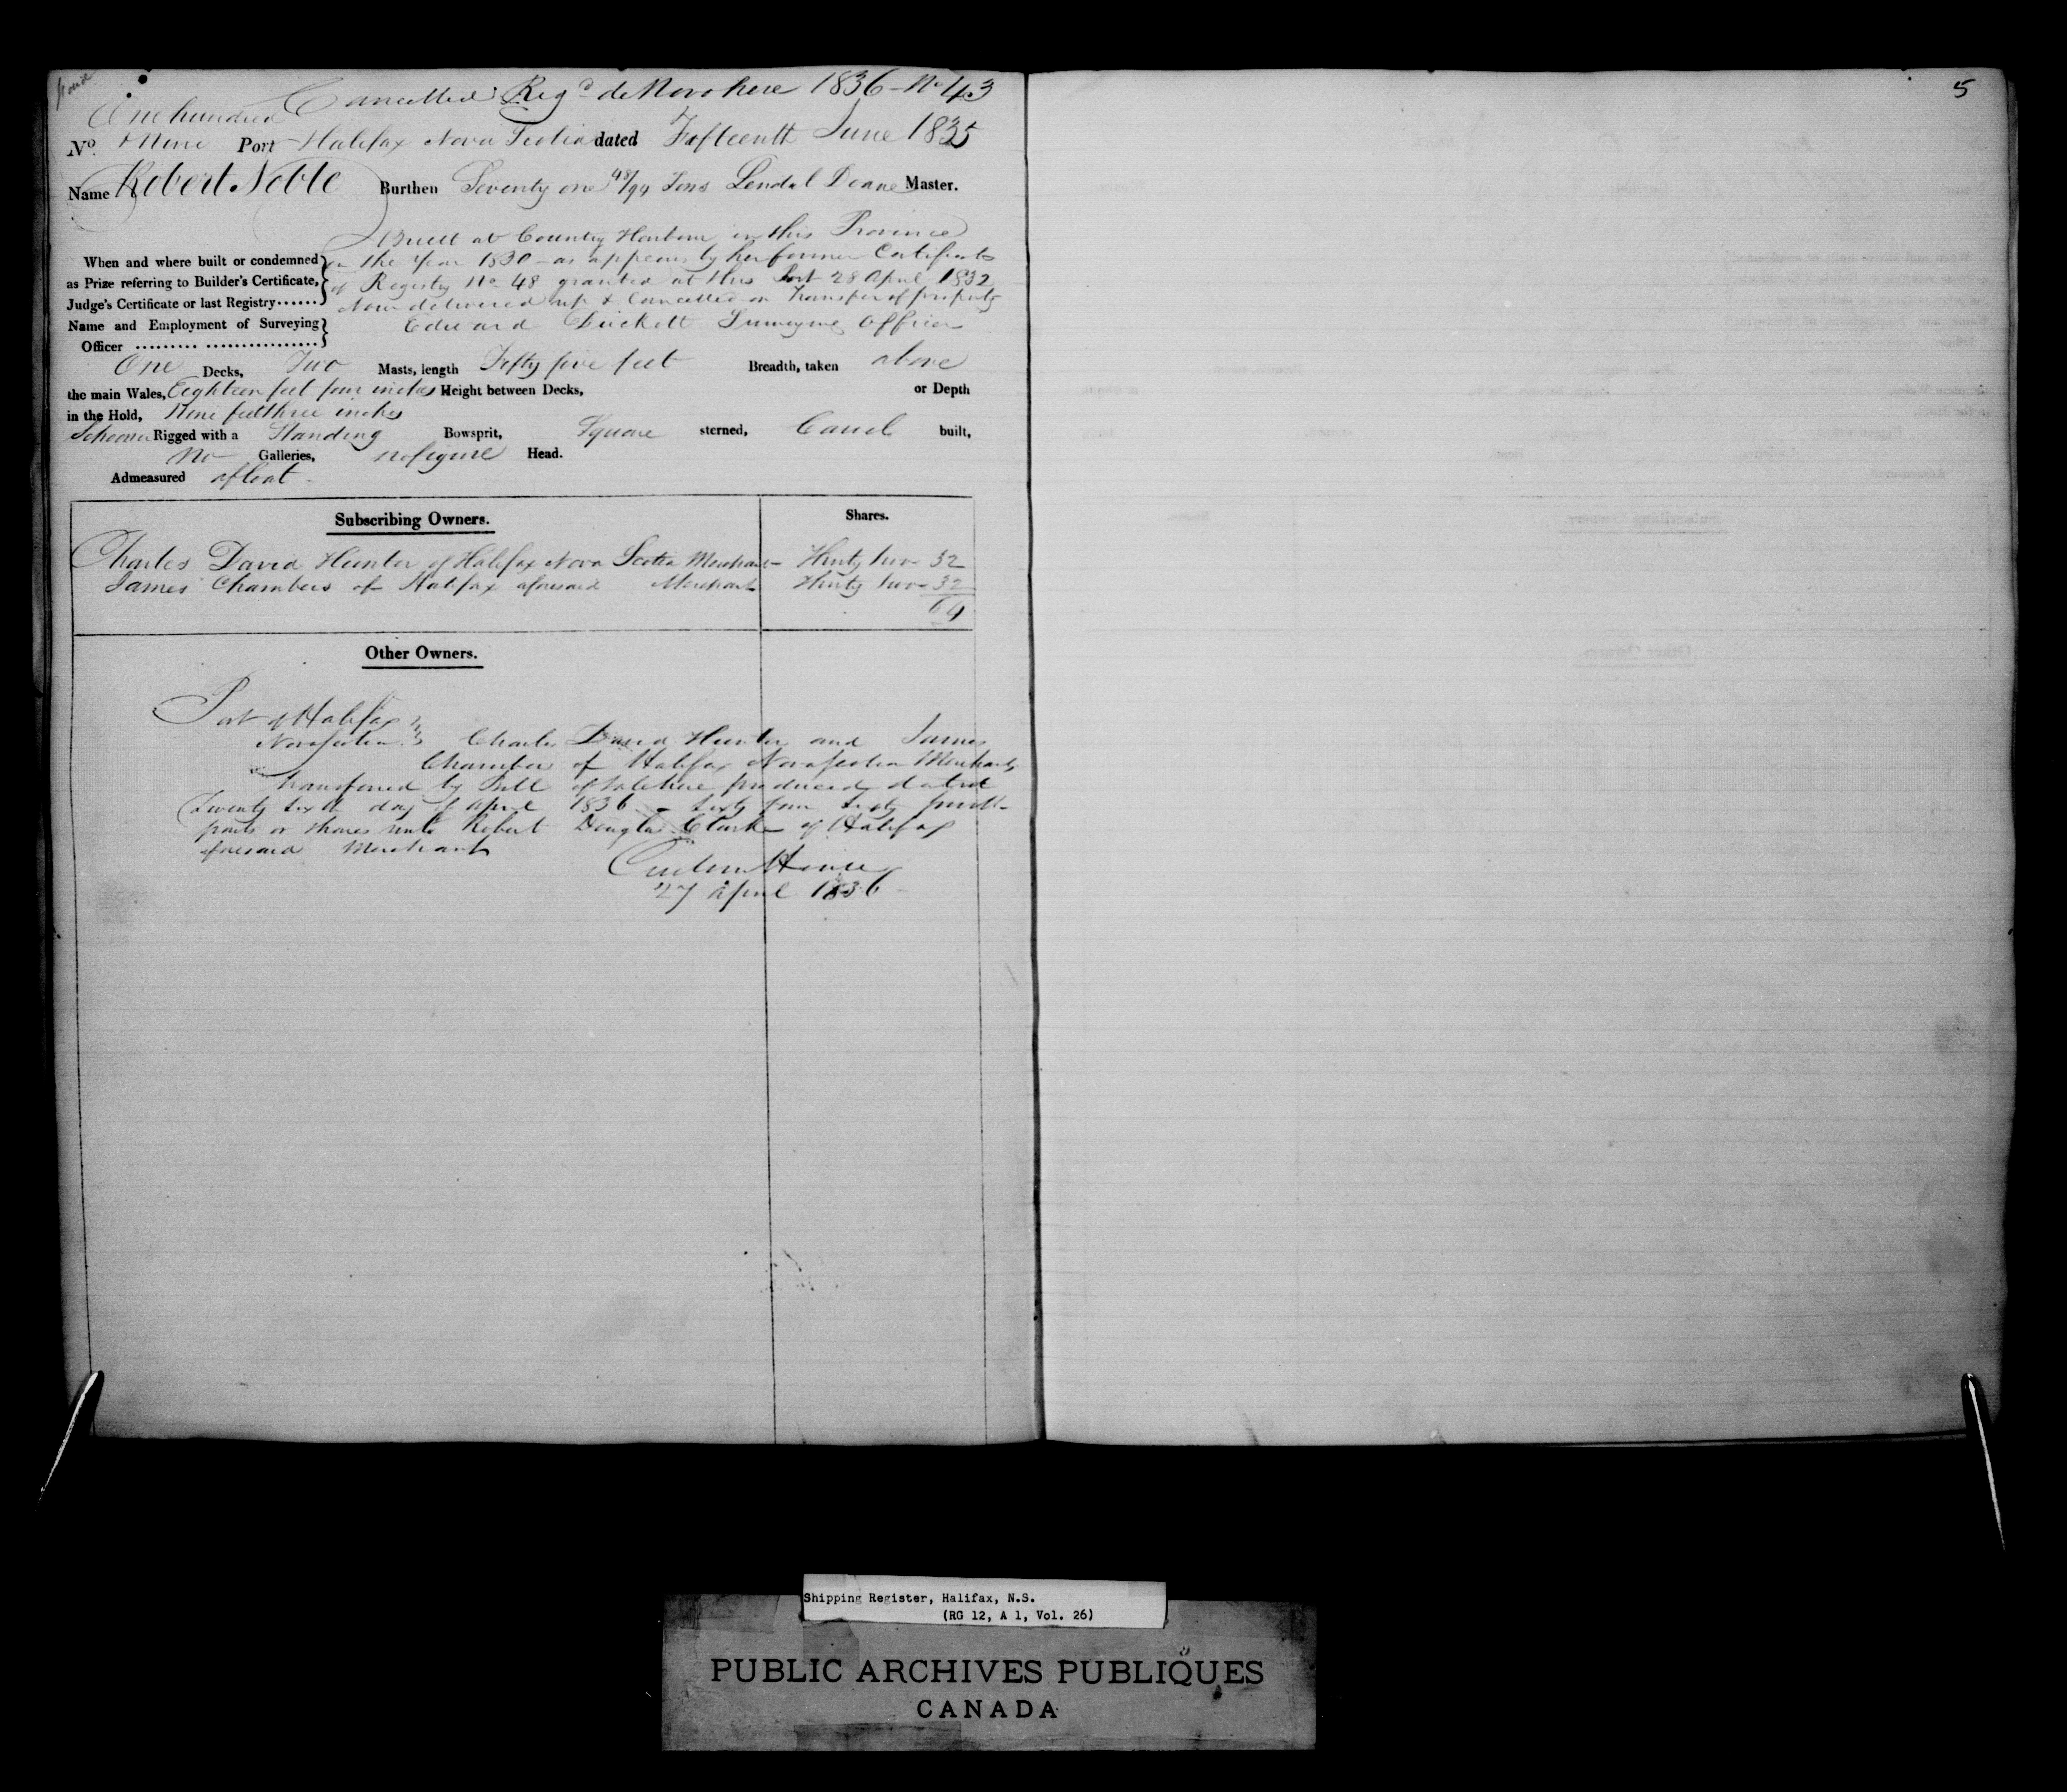 Cancelled Regd de Novo here 1836 - No 43
One hundred
No. & Nine Port Halifax Nova Scotia dated Fifteenth June 1835
Name Robert Noble Burthen Seventy one 48/94 Tons Lendal Doane Master.
Built at Country Harbour in this Province
When and where built or condemned in the Year 1830 - as appears by her former Certificate
as Prize referring to Builder's Certificate, of Registry No 48 granted at this Port 28 April 1832
Judge's Certificate or last Registry...... Now delivered up & Cancelled on Transfer of property
Name and Employment of Surveying Edward Surveying Officer
Officer ......... ...............
One Decks, Two Masts, length Fifty five feet Breadth, taken above
the main Wales, Eighteen feet four inches Height between Decks, or Depth
in the Hold, Nine feet three inches
Schooner Rigged with a Standing Bowsprit, Square sterned, Carvel built,
no Galleries, no figure Head.
Admeasured afloat -
Subscribing Owners. Shares.
Charles David Hunter of Halifax Nova Scotia Merchant - Thirty two 32
James Chambers of Halifax aforesaid Merchant Thirty two - 32
64
Other Owners.
Port of Halifax
Novascotia Charles David Hunter and James
Chambers of Halifax Novascotia Merchants
transferred by Bill of Sale here produced dated
Twenty sixth day of April 1836 - Sixty four Sixty fourth
parts or shares unto Robert Douglas Clarke of Halifax
aforesaid Merchant
Custom House
27 April 1836 -
5
Shipping Register, Halifax, N.S.
(RG 12, A 1, Vol. 26)
PUBLIC ARCHIVES PUBLIQUES
CANADA